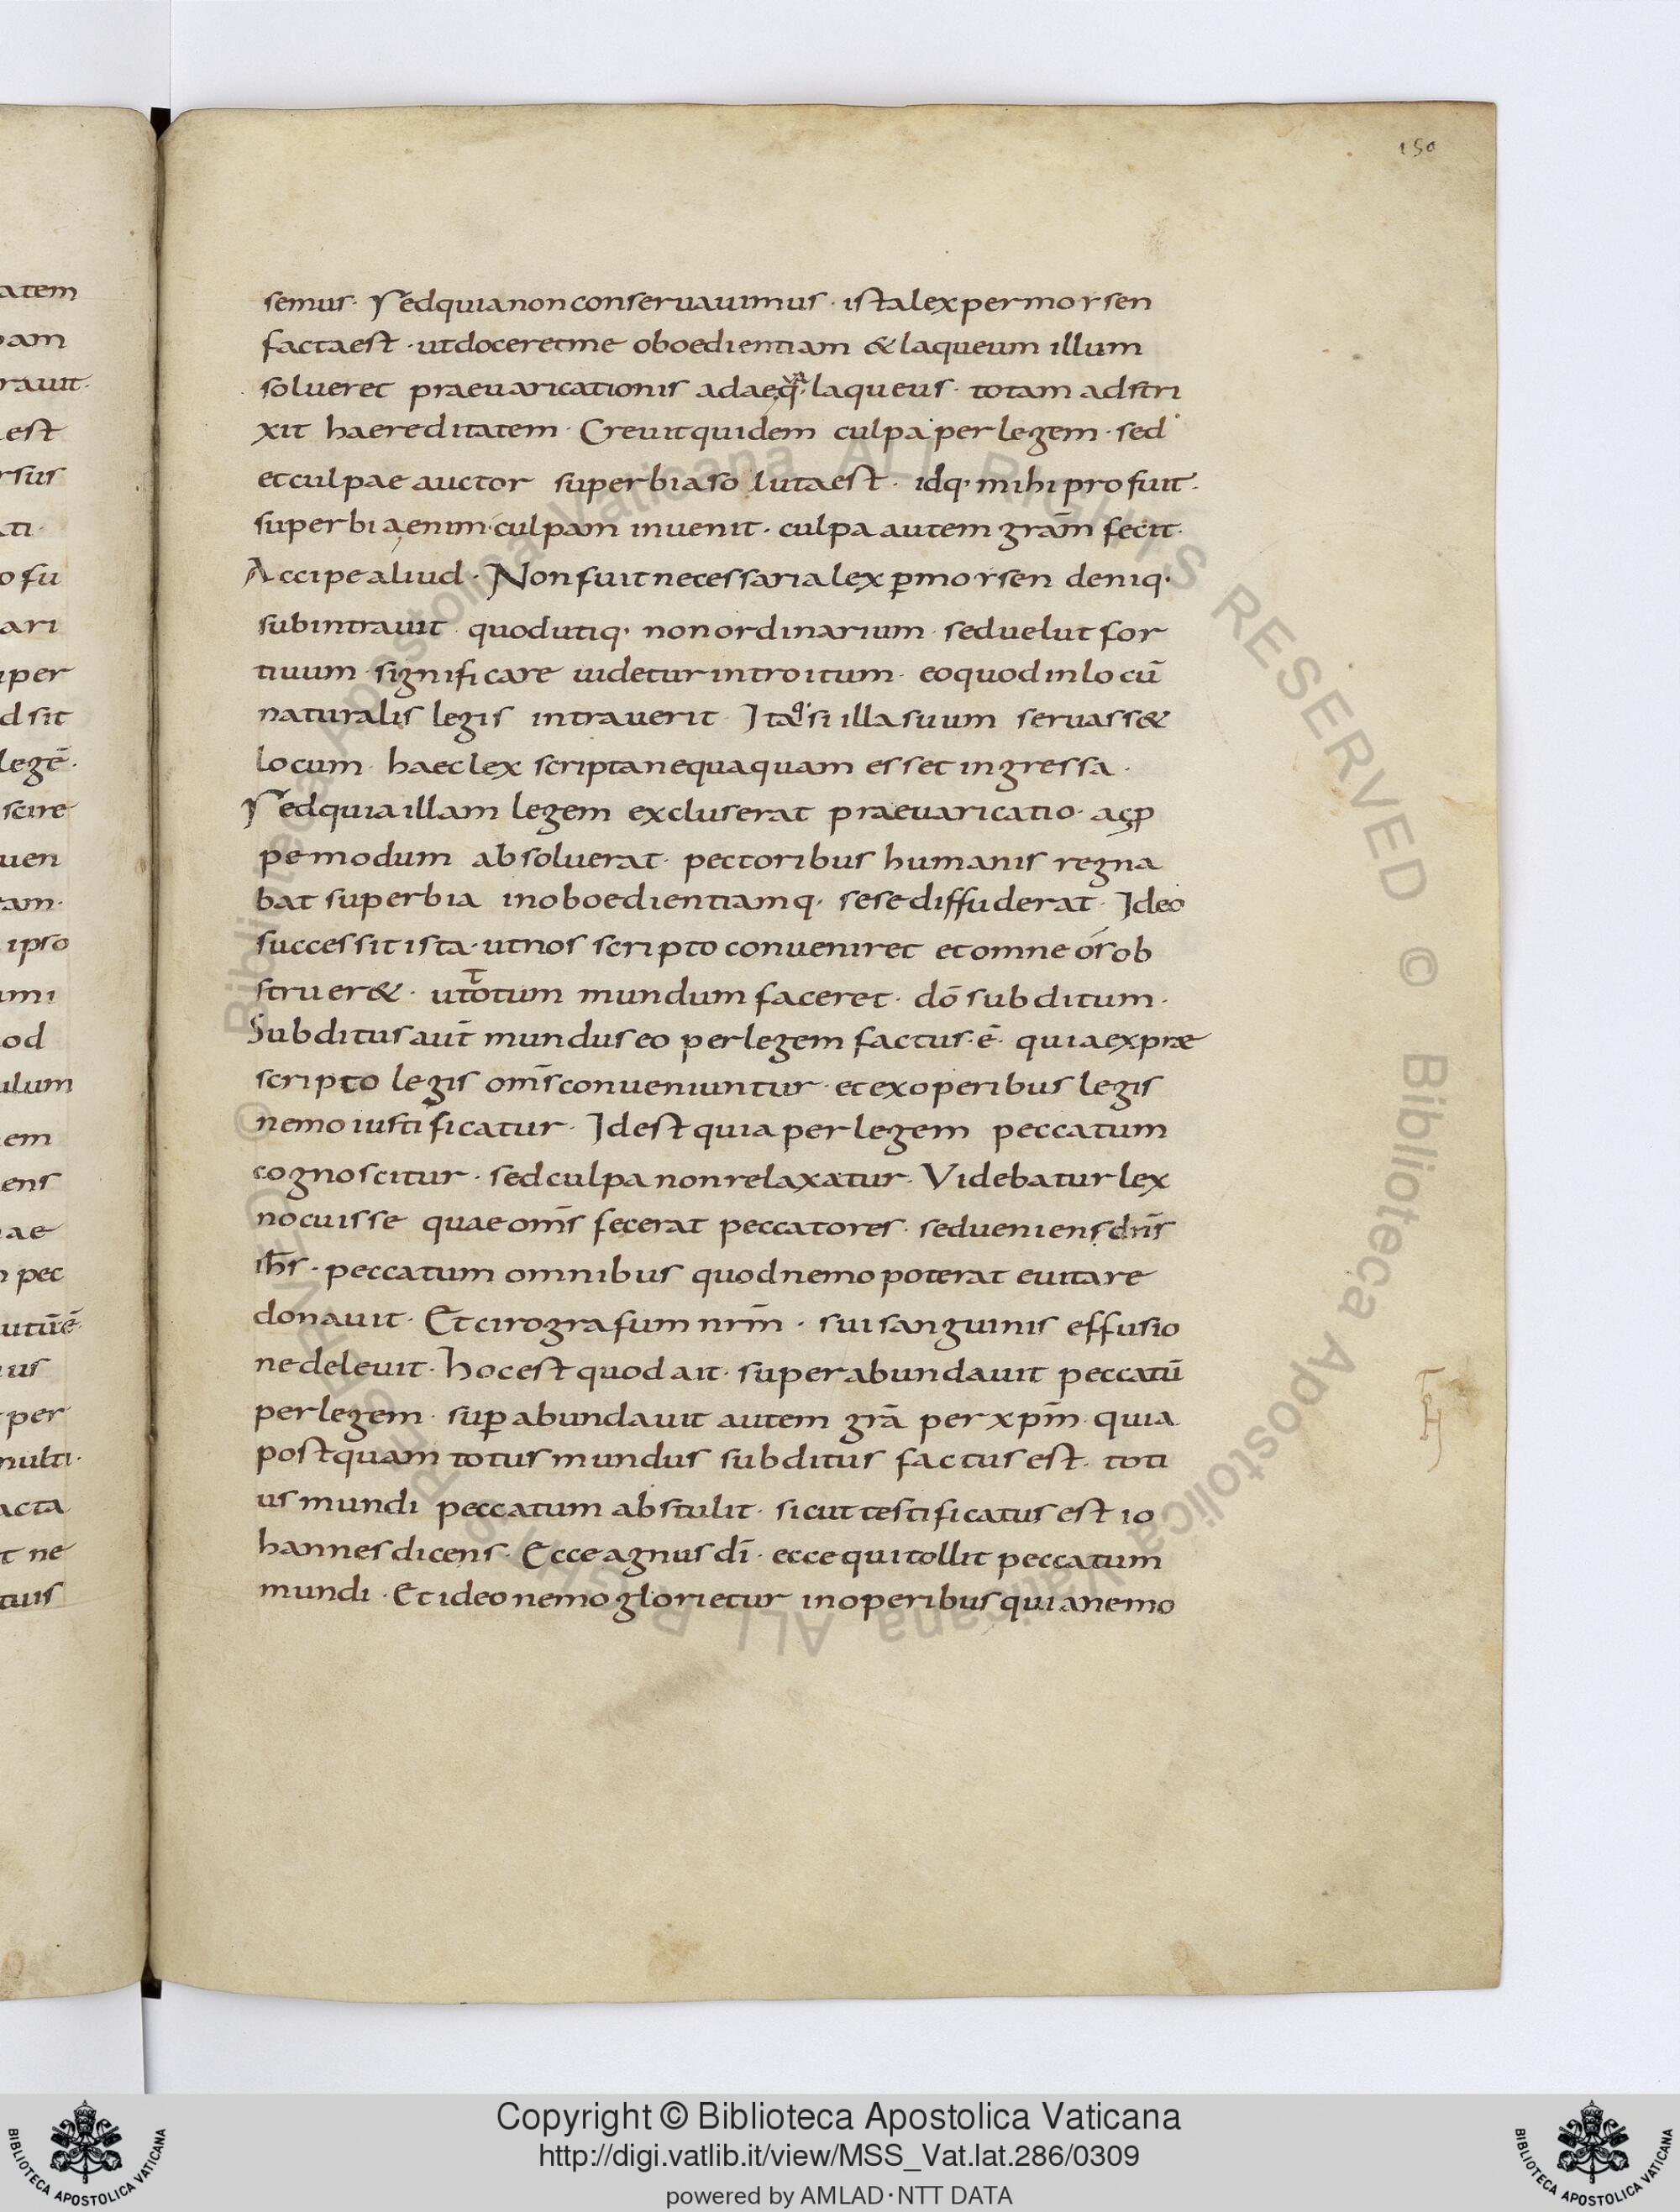 150
atem
pam
rauit·
est
rsus
ati·
o fu
ari
uper
d sit
legē·
scire
uen
tam·
ipso
umi
od
ulum
em
ens
ae
pec
utiīē·
us
per
multi·
acta
t ne
tuis
semus· Sed quia non conseruauimus· ista lex per morsen
facta est· ut doceret me oboedientiam & laqueum illum
solueret praeuaricationis adaeq· laqueus· totam adstri
xit haereditatem· Creuit quidem culpa per legem· sed
et culpae auctor superbia soluta est· idq· mihi profuit·
superbia enim culpam inuenit· culpa autem grām fecit·
Accipe aliud· Non fuit necessaria lex ꝑ morsen deniq·
subintrauit quod utiq· non ordinarium· sed uelut for
tiuum significare uidetur introitum· eo quod in locū
naturalis legis intrauerit· Itaq· si illa suum seruass&
locum· haec lex scripta nequaquam esset ingressa·
Sed quia illam legem excluserat praeuaricatio· ac ꝓ
pemodum absoluerat· pectoribus humanis regna
bat superbia inoboedientiamq· sese diffuderat· Ideo
successit ista· ut nos scripto conueniret et omne os ob
struer&· ut totum mundum faceret· dō subditum·
Subditus aūt mundus eo per legem factus· ē· quia ex præ
scripto legis om̄s conueniuntur· et ex operibus legis
nemo iustificatur· Id est quia per legem peccatum
cognoscitur· sed culpa non relaxatur· Videbatur lex
nocuisse quae om̄s fecerat peccatores· sed ueniens dn̄s
ih̄s· peccatum omnibus quod nemo poterat euitare
donauit· Et cirografum nrm̄· sui sanguinis effusio
ne deleuit· Hoc est quod ait· superabundauit peccatū
per legem· suꝑabundauit autem grā per xpm̄· quia
postquam totus mundus subditus factus est· toti
us mundi peccatum abstulit· sicut testificatus est io
hannes dicens· Ecce agnus dī· ecce qui tollit peccatum
mundi· Et ideo nemo glorietur in operibus quia nemo
© Biblioteca Apostolica Vaticana ALL RIGHTS RESERVED © Biblioteca Apostolica Vaticana ALL RIGHTS RESERVED
Copyright © Biblioteca Apostolica Vaticana
http://digi.vatlib.it/view/MSS_Vat.lat.286/0309
powered by AMLAD·NTT DATA
BIBLIOTECA APOSTOLICA VATICANA
BIBLIOTECA APOSTOLICA VATICANA